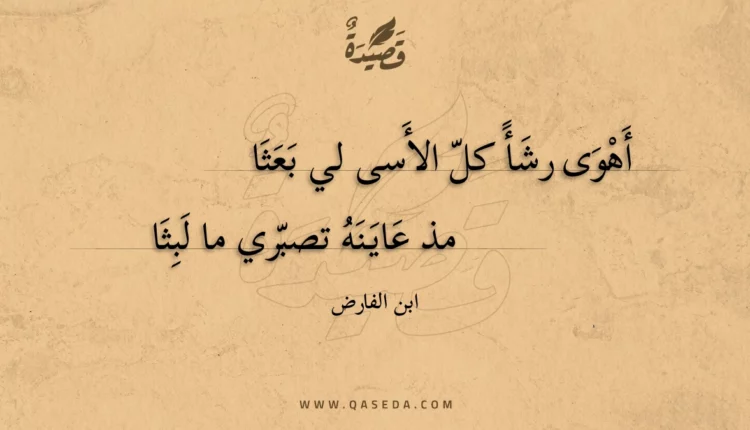 قَصِيْدَةٌ
أَهْوَى رشَأً كلّ الأَسى لي بَعَثَا
مذ عَايَنَهُ تصبّري ما لَبِثَا
ابن الفارض
WWW.QASEDA.COM